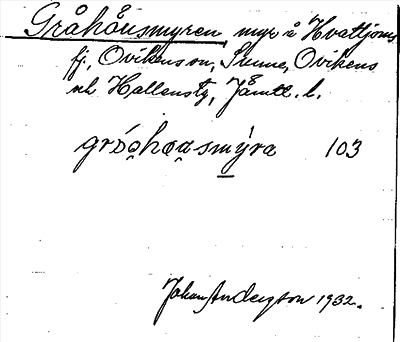 Gråhånsmyren myr å Hvattjoms
fj, Ovikens sn, Sunne, Ovikens
o. Hallens tg, Jämtl. l.
gróo̯hoa̯smýra 103
Johan Anderzson 1932.